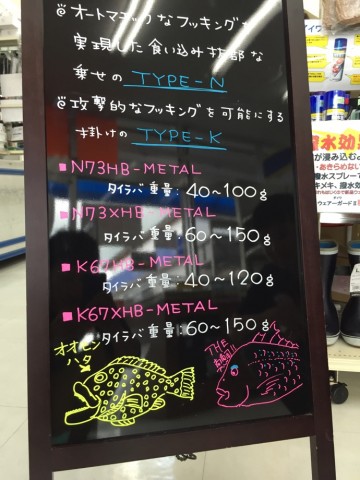 ◎オートマチックなフッキングを
実現した食い込み抜群な
乗せの TYPE-N
◎攻撃的なフッキングを可能にする
掛けの TYPE-K
■N73HB-METAL
タイラバ重量:40~100g
■N73XHB-METAL
タイラバ重量:60~150g
■K67HB-METAL
タイラバ重量:40~120g
■K67XHB-METAL
タイラバ重量:60~150g
オオモン
ハタ
THE
真鯛!!
撥水効
が浸み込む
あきらめない
撥水スプレーで
キメキ、撥水効
ウェアーガード